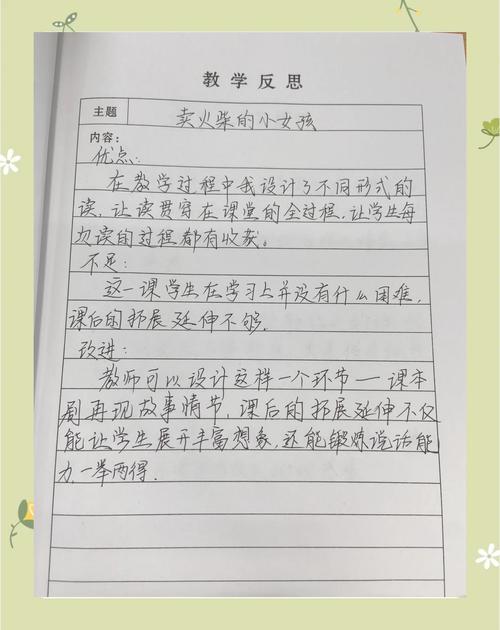 教学反思
主题 卖火柴的小女孩
内容:
优点:
在教学过程中我设计了不同形式的
读,让读贯穿在课堂的全过程,让学生每
次读的过程都有收获。
不足:
这一课学生在学习上并没有什么困难,
课后的拓展延伸不够.
改进:
教师可以设计这样一个环节一课本
剧再现故事情节,课后的拓展延伸不仅
能让学生展开丰富想象,还能锻炼说话能
力,一举两得.